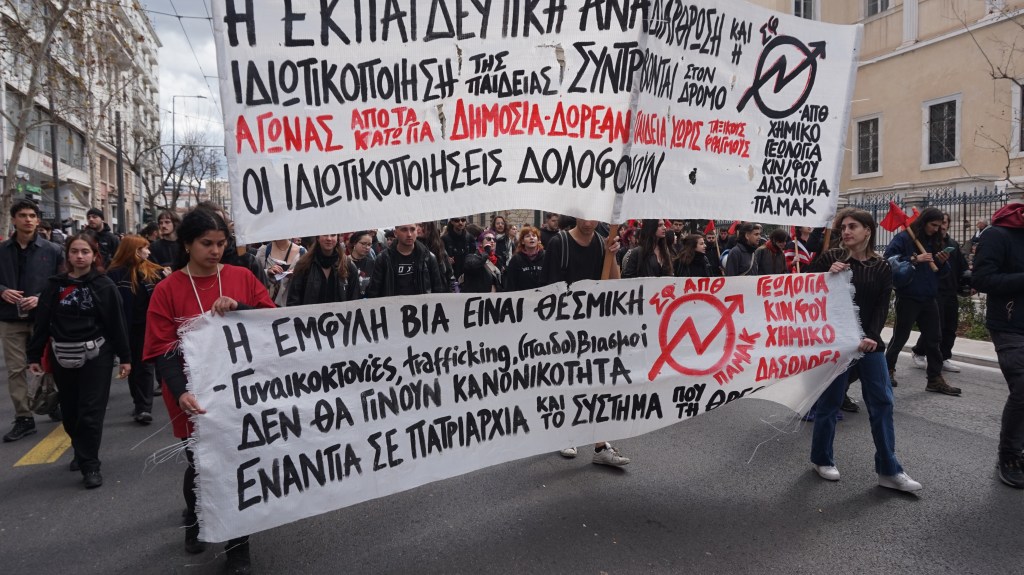 Η ΕΚΠΑΙΔΕΥΤΙΚΗ ΑΝΑΔΙΑΡΘΡΩΣΗ ΚΑΙ Η
ΙΔΙΩΤΙΚΟΠΟΙΗΣΗ ΤΗΣ ΠΑΙΔΕΙΑΣ ΣΥΝΤΡΙΒΟΝΤΑΙ ΣΤΟΝ ΔΡΟΜΟ
ΑΓΩΝΑΣ ΑΠΟ ΤΑ ΚΑΤΩ ΓΙΑ ΔΗΜΟΣΙΑ-ΔΩΡΕΑΝ ΠΑΙΔΕΙΑ ΧΩΡΙΣ ΤΑΞΙΚΟΥΣ ΦΡΑΓΜΟΥΣ
ΟΙ ΙΔΙΩΤΙΚΟΠΟΙΗΣΕΙΣ ΔΟΛΟΦΟΝΟΥΝ
ΣΦ
ΑΠΘ
ΧΗΜΙΚΟ
ΓΕΩΛΟΓΙΑ
ΚΙΝ/ΦΟΥ
ΔΑΣΟΛΟΓΙΑ
-ΠΑ.ΜΑΚ
Η ΕΜΦΥΛΗ ΒΙΑ ΕΙΝΑΙ ΘΕΣΜΙΚΗ
-Γυναικοκτονίες, trafficking, (παιδο)βιασμοί
ΔΕΝ ΘΑ ΓΙΝΟΥΝ ΚΑΝΟΝΙΚΟΤΗΤΑ
ΕΝΑΝΤΙΑ ΣΕ ΠΑΤΡΙΑΡΧΙΑ ΚΑΙ ΤΟ ΣΥΣΤΗΜΑ ΠΟΥ ΤΗ
ΣΦ ΑΠΘ
ΠΑΜΑΚ
ΓΕΩΛΟΓΙΑ
ΚΙΝ/ΦΟΥ
ΧΗΜΙΚΟ
ΔΑΣΟΛΟΓΙΑ